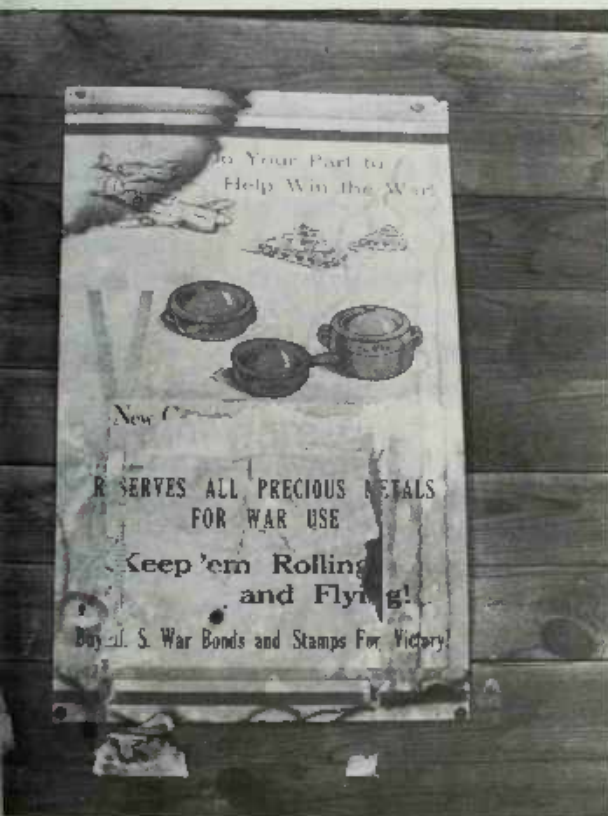 Your Part to
Help Win the War!
New
R SERVES ALL PRECIOUS METALS
FOR WAR USE
Keep 'em Rolling
and Flying!
Buy U. S. War Bonds and Stamps For Victory!